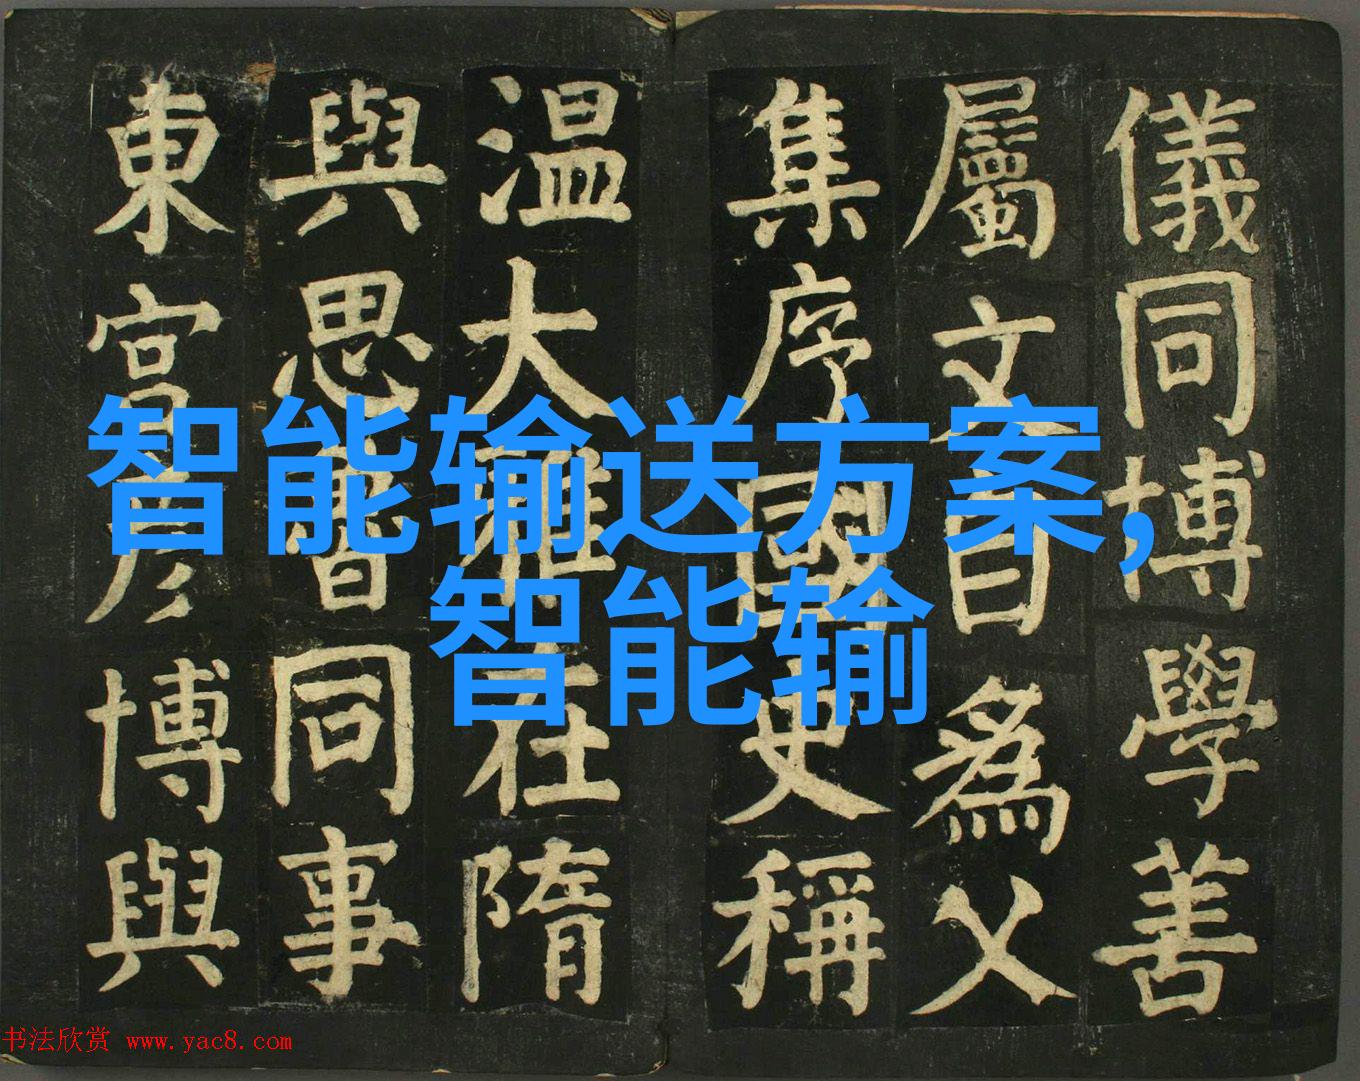 儀同博學善
屬文自爲父
集序國史稱
温大雅在隋
與思魯同事
東宮彦博與
智能输送方案,
智能输
书法欣赏 www.yac8.com